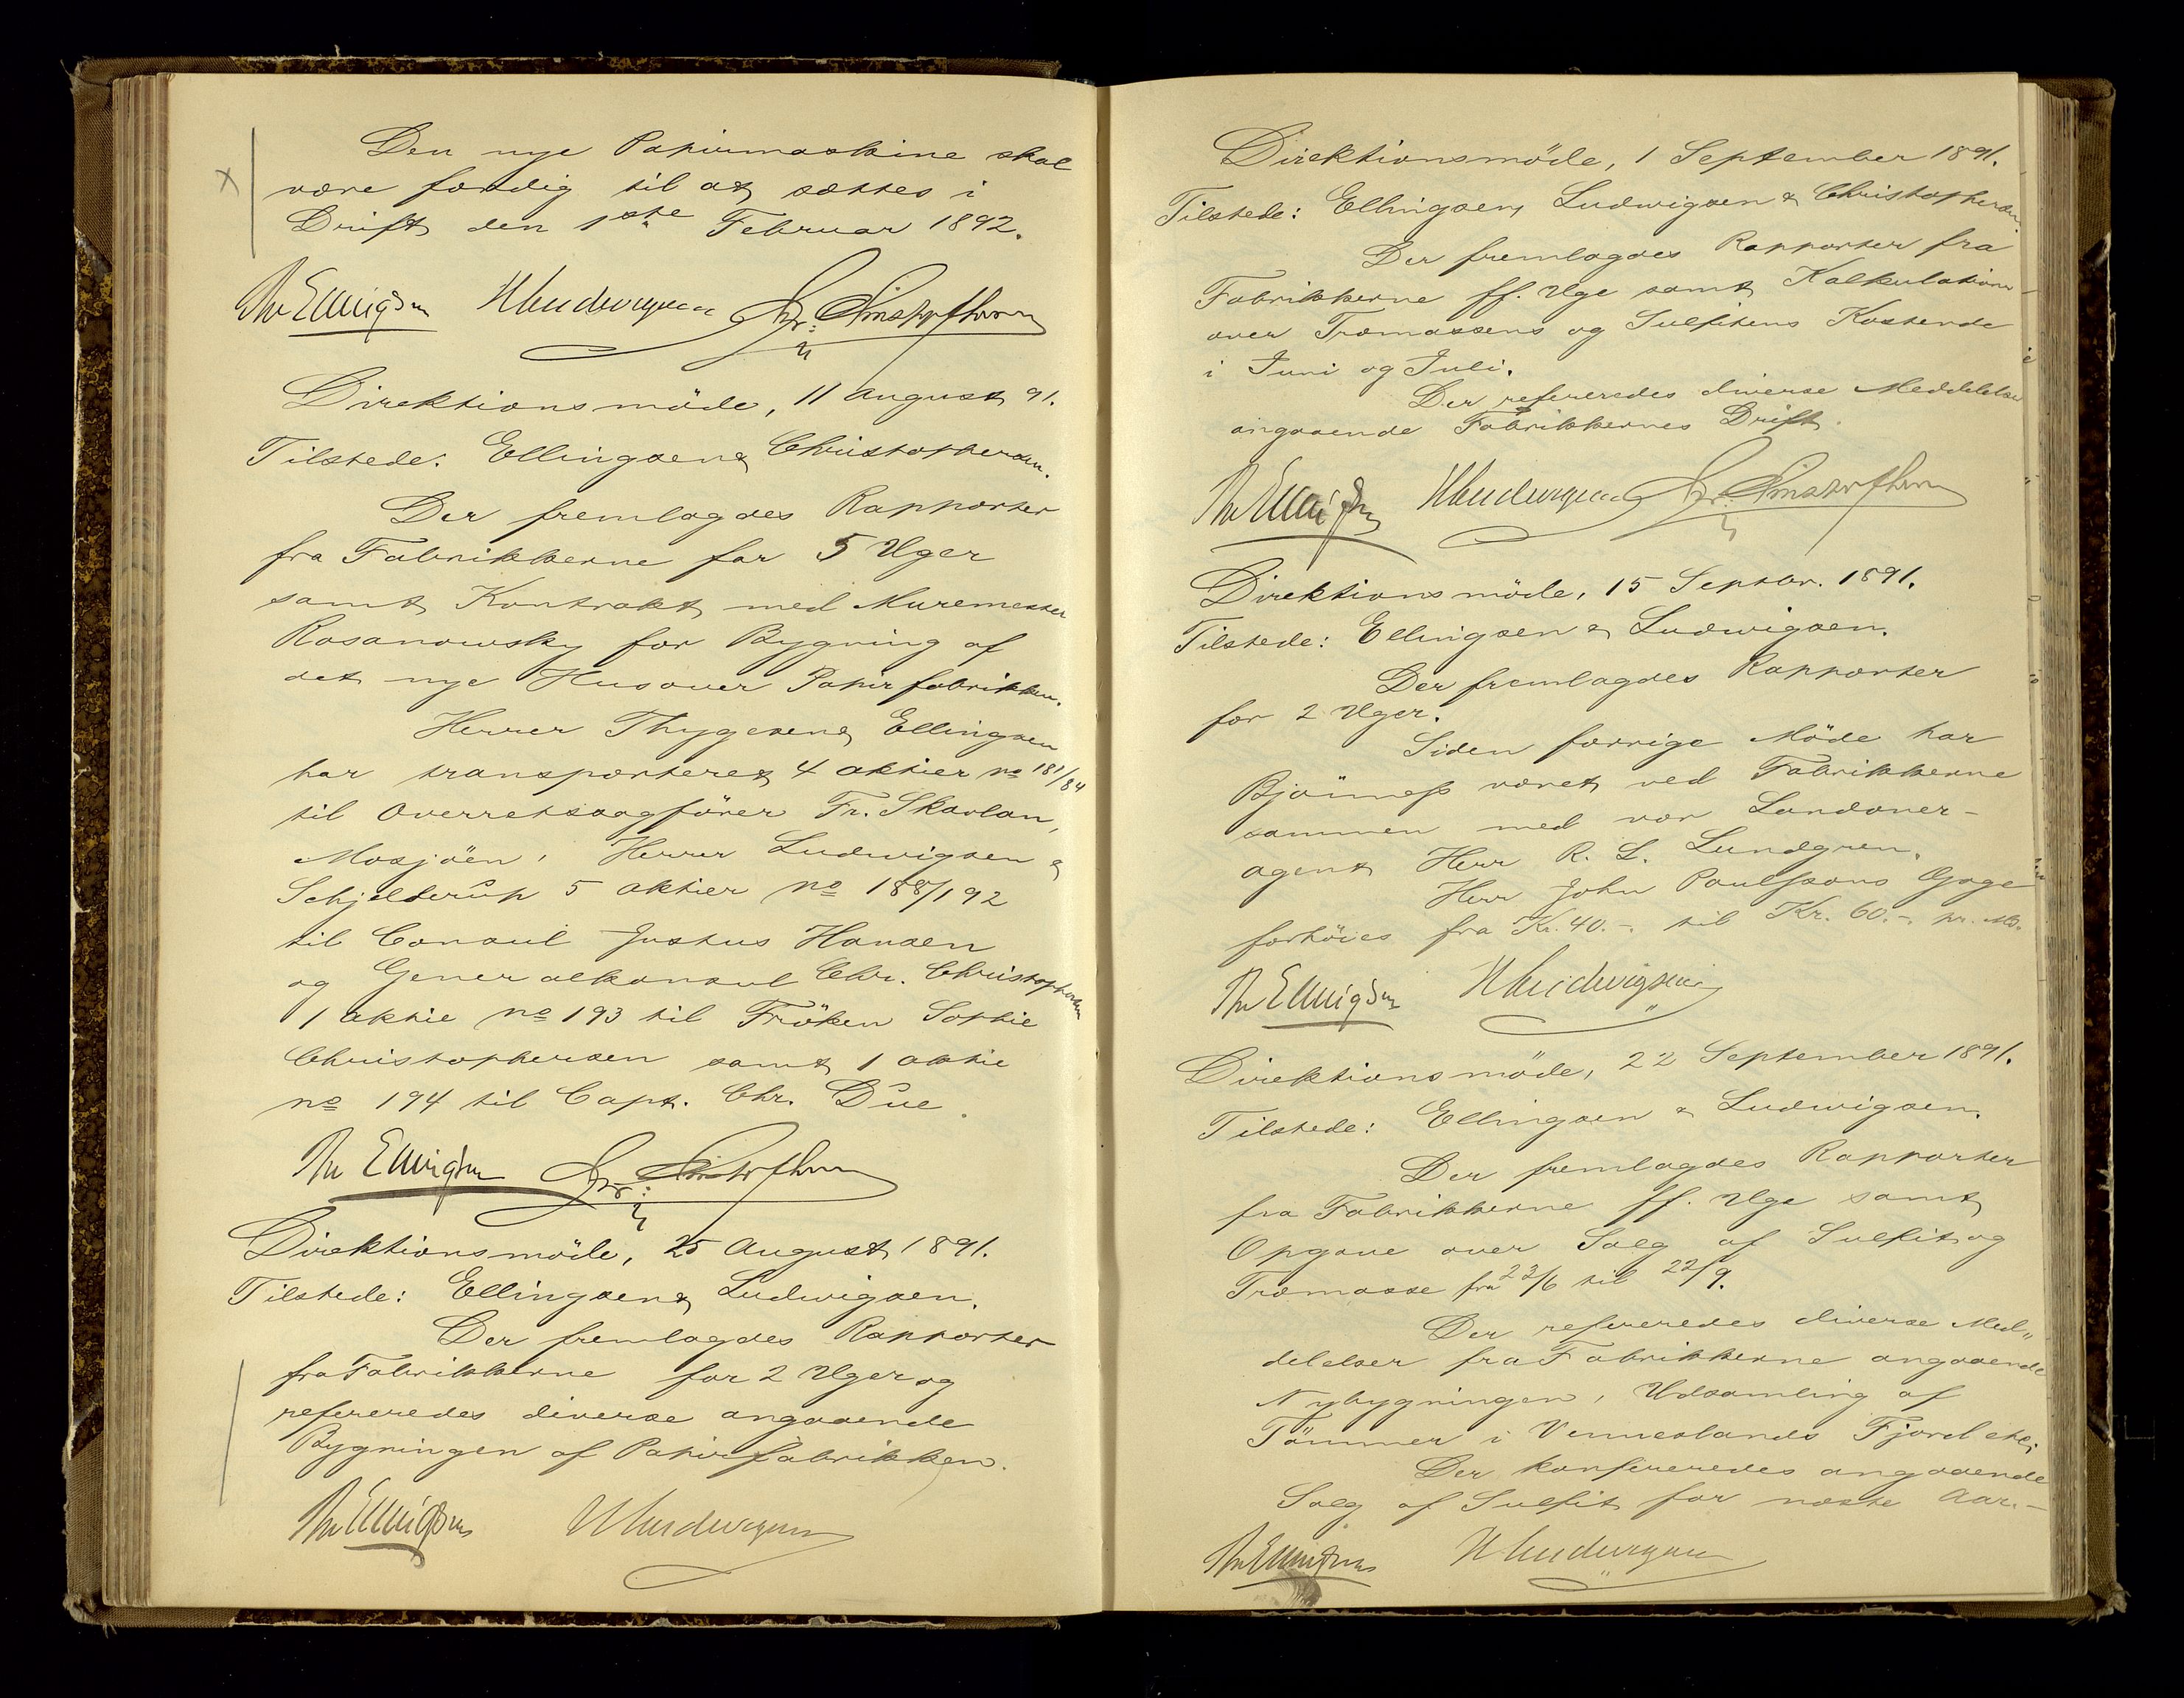 Den nye Papirmaskine skal
være færdig til at sættes i
Drift den 1ste Februar 1892.
Th Ellingsen HLudwigsen Chr. Christophersen
Direktionsmöde, 11 August 91.
Tilstede: Ellingsen & Christophersen.
Der fremlagdes Rapporter
fra Fabrikkerne for 5 Uger
samt Kontrakt med Muremester
Rosanowsky for Bygning af
det nye Hus over Papirfabrikken.
Herrer Thygesen & Ellingsen
har transporteret 4 aktier no 181/84
til Overretssagförer Fr. Skavlan,
Mosjöen, Herrer Ludwigsen &
Schjelderup 5 aktier no 188/192
til Consul Justus Hansen
og Generalkonsul Chr. Christophersen
1 aktie no 193 til Fröken Sophie
Christophersen samt 1 aktie
no 194 til Capt. Chr. Due.
Th Ellingsen Chr. Christophersen
Direktionsmöde, 25 August 1891.
Tilstede: Ellingsen & Ludwigsen.
Der fremlagdes Rapporter
fra Fabrikkerne for 2 Uger og
refereredes diverse angaaende
Bygningen af Papirfabrikken.
Th Ellingsen HLudwigsen
Direktionsmöde, 1 September 1891.
Tilstede: Ellingsen, Ludwigsen & Christophersen.
Der fremlagdes Rapporter fra
Fabrikkerne ff. Uge samt Kalkulation
over Træmassens og Sulfitens Kostende
i Juni og Juli.
Der refereredes diverse Meddelelser
angaaende Fabrikkernes Drift.
Th Ellingsen HLudwigsen Chr. Christophersen
Direktionsmöde, 15 Septbr. 1891.
Tilstede: Ellingsen & Ludwigsen.
Der fremlagdes Rapporter
for 2 Uger.
Siden forrige Möde har
Bjönness været ved Fabrikkerne
sammen med vor Londoner-
agent Herr R. L. Lundgren.
Herr John Paulssons Gage
forhöies fra Kr. 40.-. til Kr. 60.-. pr. Md.
Th Ellingsen HLudwigsen
Direktionsmöde, 22 September 1891.
Tilstede: Ellingsen & Ludwigsen.
Der fremlagdes Rapporter
fra Fabrikkerne ff. Uge samt
Opgave over Salg af Sulfit og
Træmasse fra 23/6 til 22/9.
Der refereredes diverse Med„
delelser fra Fabrikkerne angaaende
Nybygningen, Udsamling af
Tömmer i Venneslands Fjord etc;
Der konfereredes angaaende
Salg af Sulfit for næste Aar.-
Th Ellingsen HLudwigsen